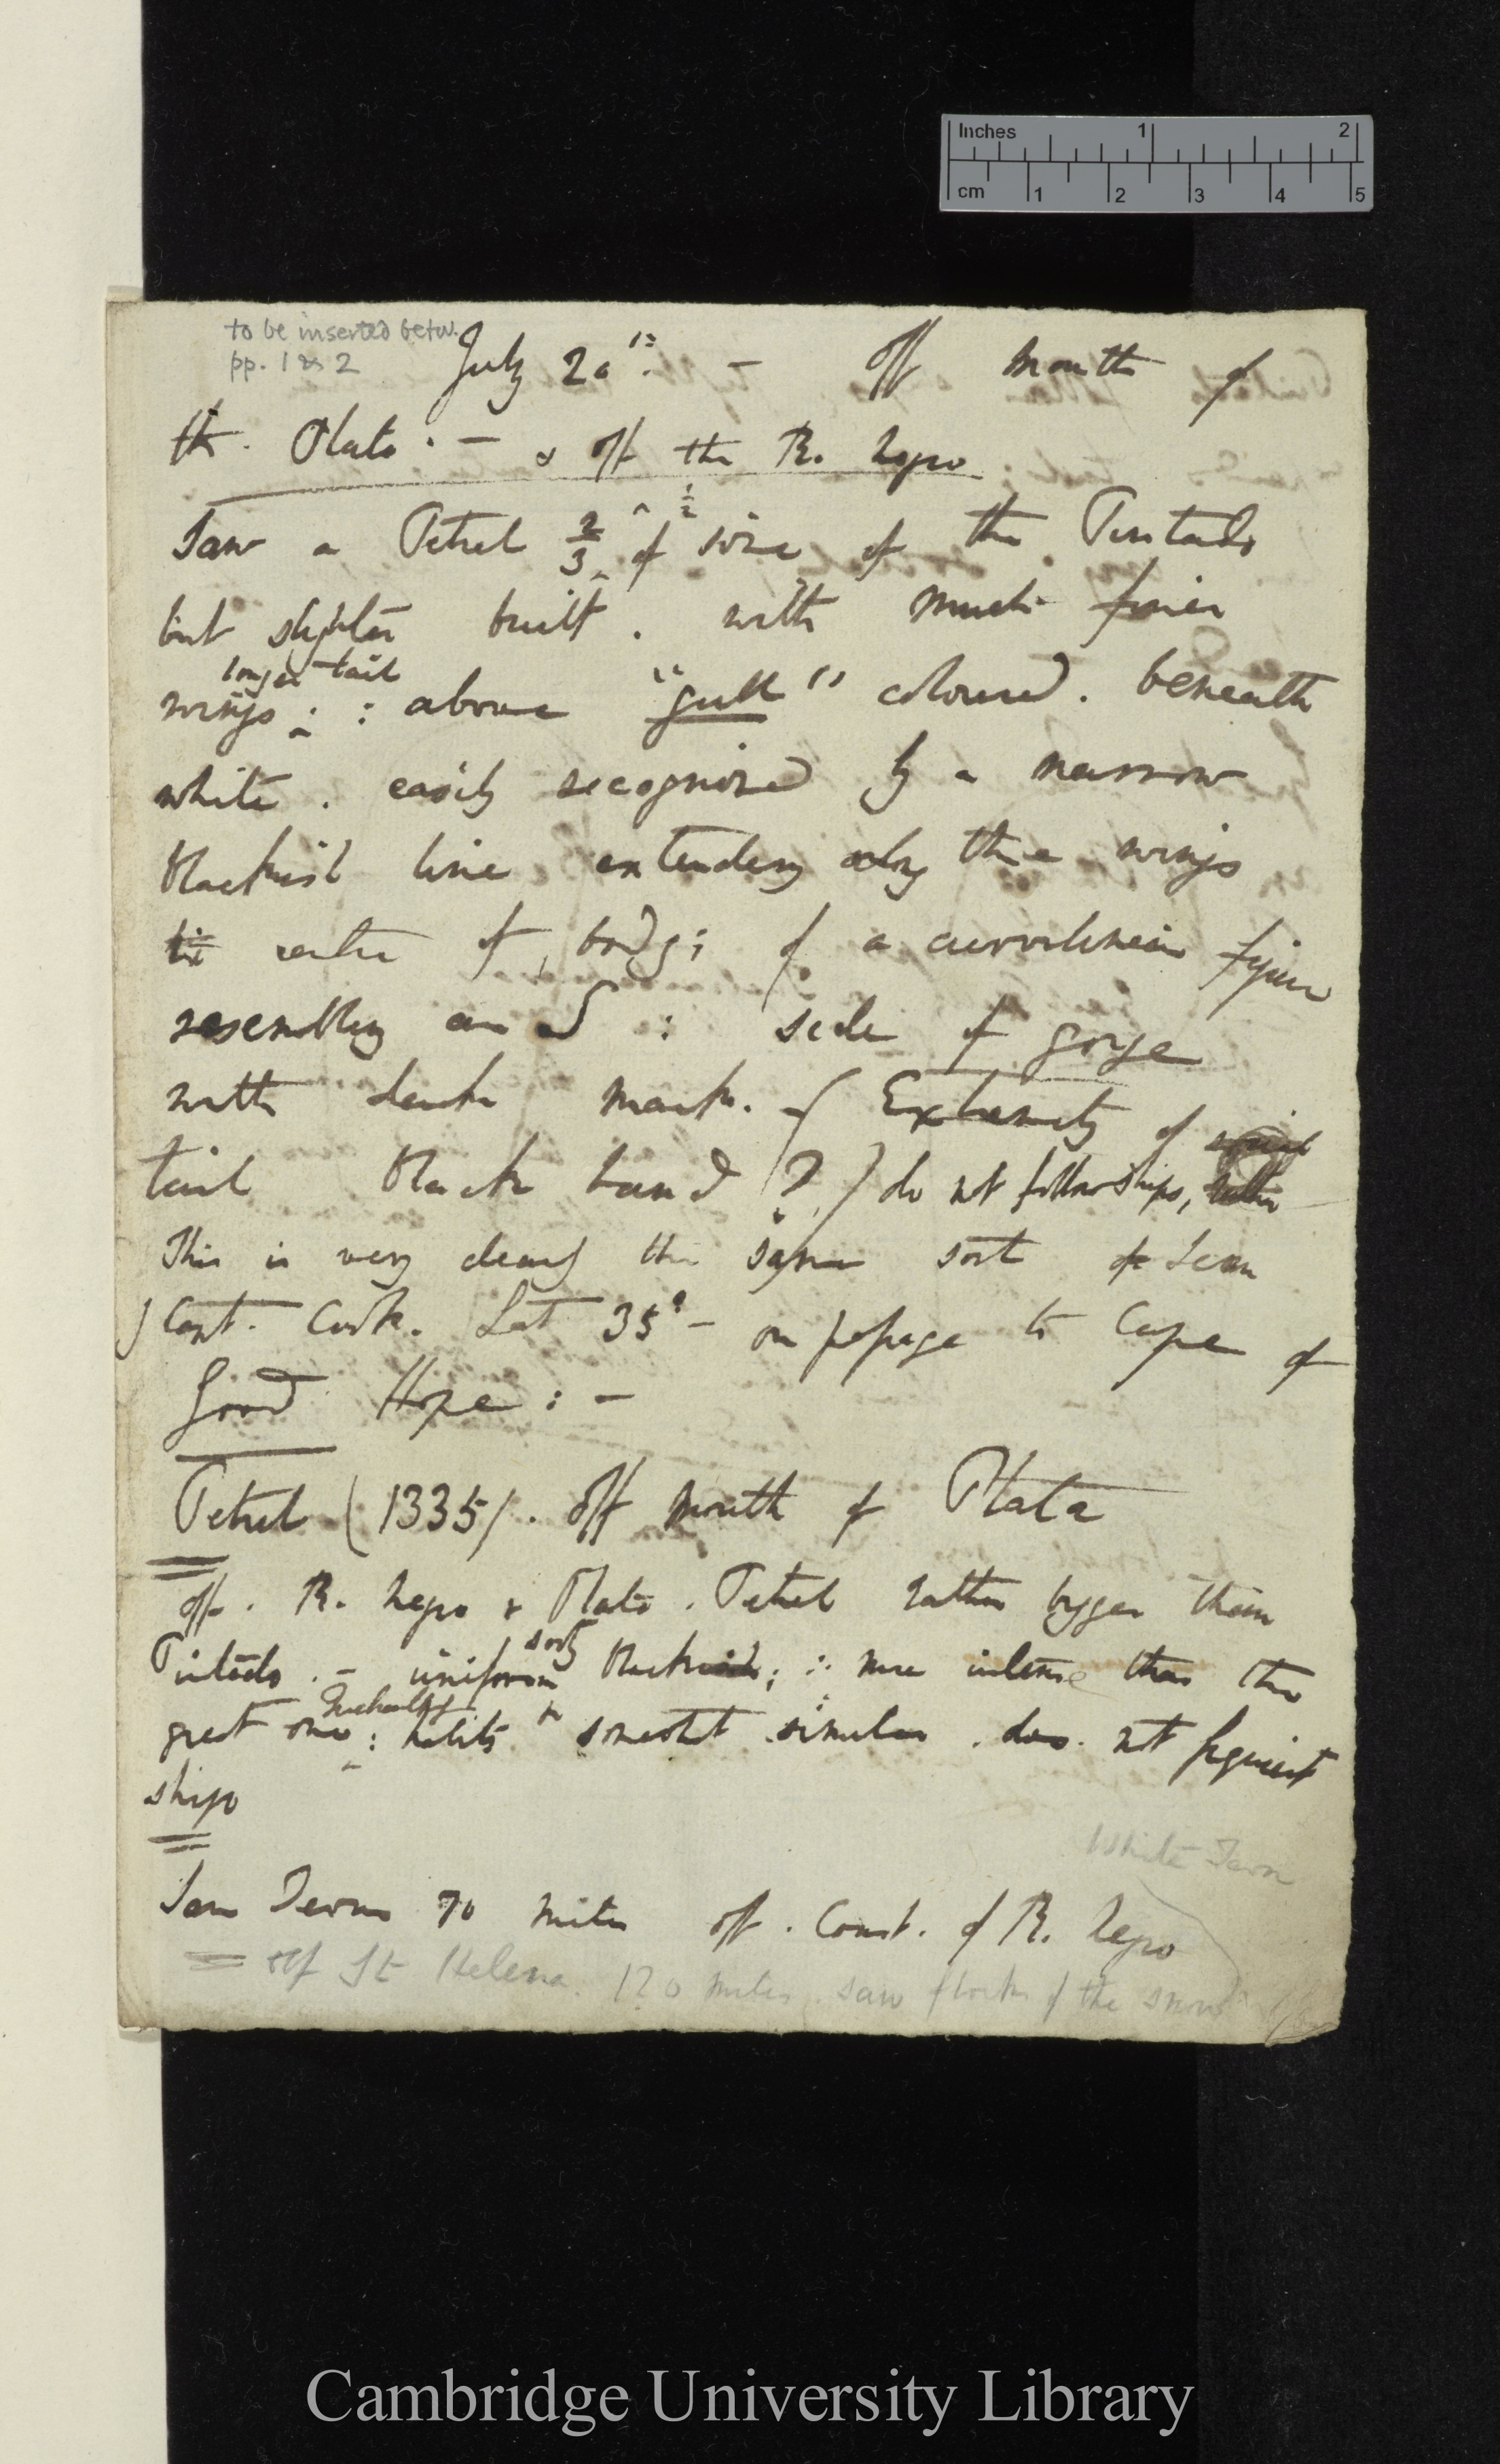 Inches 1 2
cm 1 2 3 4 5
to be inserted betw.
pp. 1 & 2
July 20th. — off mouth of
the Plata. — & off the R. Negro
Saw a Petrel 2/3 1/2 of size of the Pintado
but slighter built. with much finer
longer tail
wings; : above "gull" coloured. beneath
white. easily recognised by a narrow
blackish line extending along the wings
centre of body; of a curvilinear figure
resembling an S : side of gorge
with dark mark. — ( Extremity of
tail black band (?) ) do not follow ships,
This is very clearly the same sort seen
Capt. Cook. Lat 35° — on passage to Cape of
Good Hope : —
Petrel (1335). off mouth of Plata
off. R. Negro & Plata. Petrel rather bigger than
sooty
Pintado. — uniform blackish; : more intense than the
great one : habits somewhat similar. does not frequent
ships
White Tern
Saw Terns 70 miles off. Coast. of R. Negro
= off St Helena. 120 miles. saw flock of the snow
Cambridge University Library